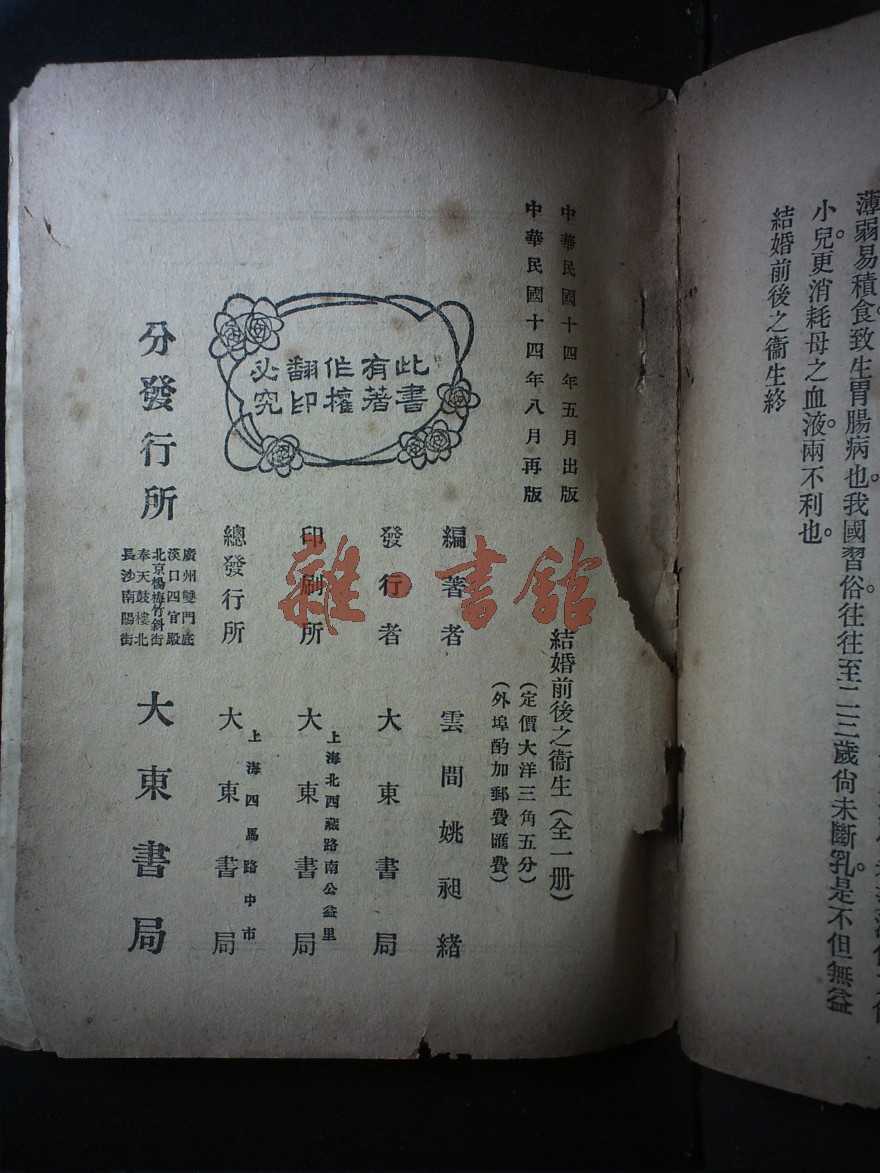 薄弱易積食。致生胃腸病也。我國習俗往往至二三歲尙未斷乳。是不但無益
小兒。更消耗母之血液。兩不利也。
結婚前後之衞生終
中華民國十四年五月出版
中華民國十四年八月再版
結婚前後之衞生（全一册）
（定價大洋三角五分）
（外埠酌加郵費匯費）
此書
有著
作權
翻印
必究
編著者 雲間姚昶緒
發行者 大東書局
上海北西藏路南公益里
印刷所 大東書局
上海四馬路中市
總發行所 大東書局
分發行所
廣州雙門底
漢口四官殿
北京楊梅竹斜街
奉天鼓樓北
長沙南陽街
大東書局
雜·書館